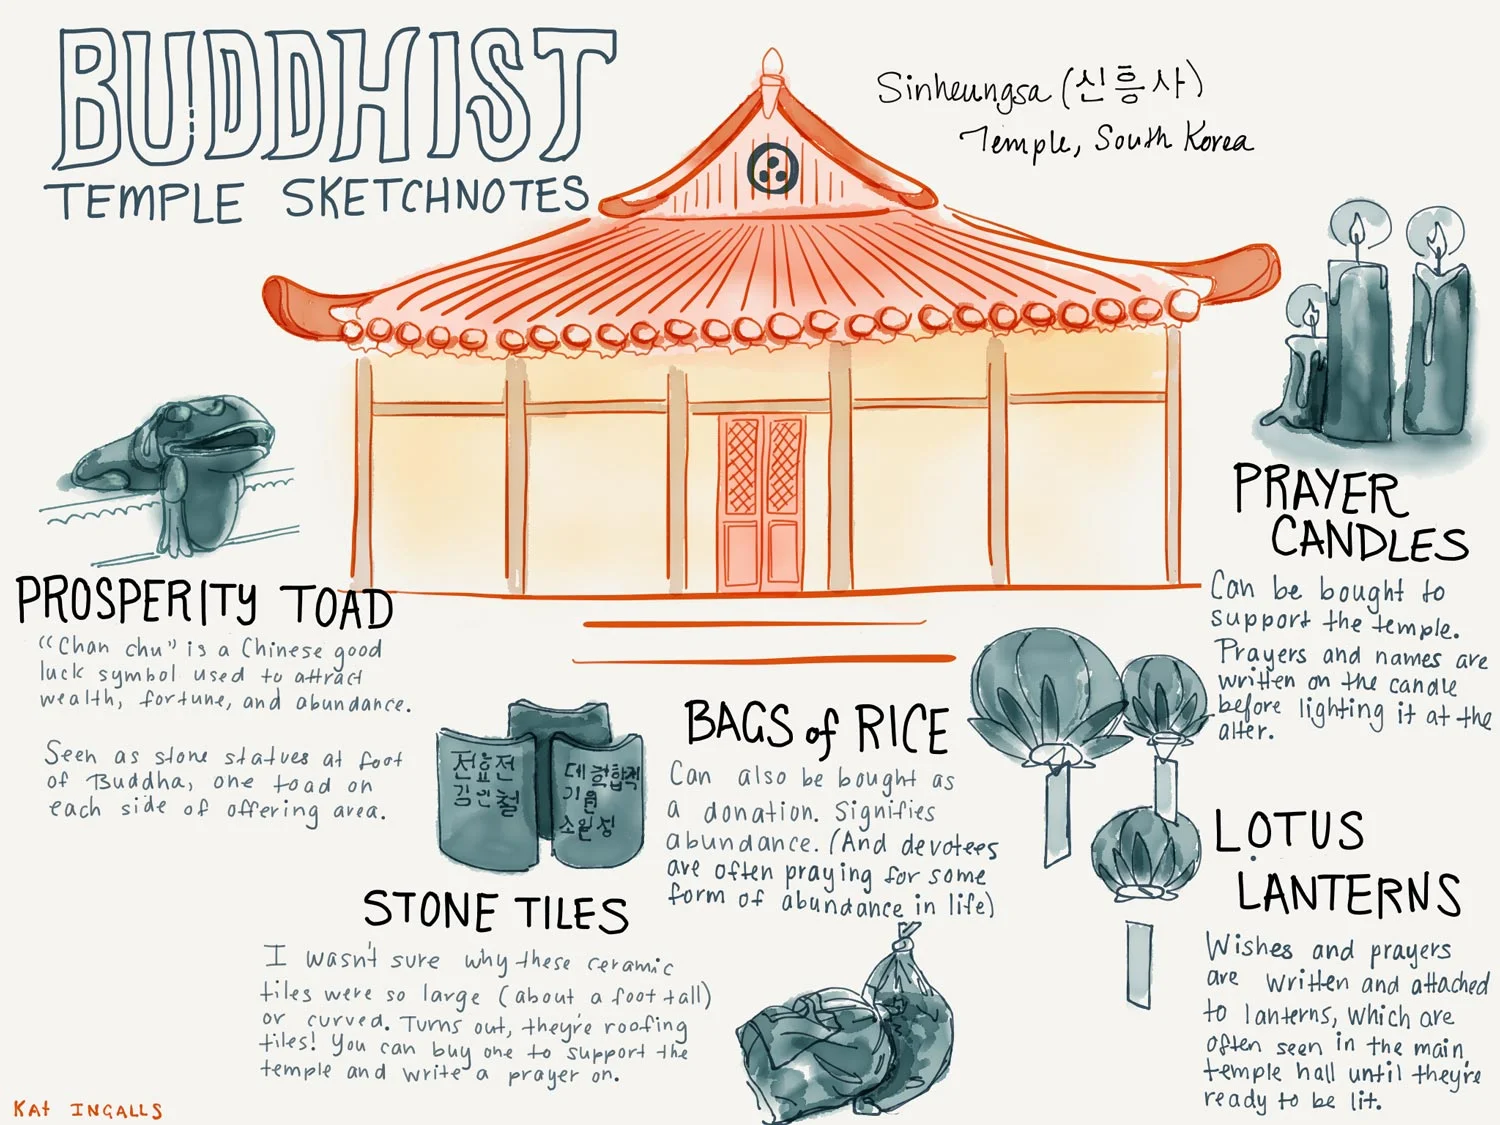 BUDDHIST
TEMPLE SKETCHNOTES
Sinheungsa (신흥사)
Temple, South Korea
PRAYER
CANDLES
Can be bought to
support the temple.
Prayers and names are
written on the candle
before lighting it at the
alter.
PROSPERITY TOAD
"Chan chu" is a Chinese good
luck symbol used to attract
wealth, fortune, and abundance.
Seen as stone statues at foot
of Buddha, one toad on
each side of offering area.
김인철
기원
소원성
STONE TILES
I wasn't sure why these ceramic
tiles were so large (about a foot tall)
or curved. Turns out, they're roofing
tiles! You can buy one to support the
temple and write a prayer on.
BAGS of RICE
Can also be bought as
a donation. Signifies
abundance. (And devotees
are often praying for some
form of abundance in life)
LOTUS
LANTERNS
Wishes and prayers
are written and attached
to lanterns, which are
often seen in the main
temple hall until they're
ready to be lit.
KAt INGALLS